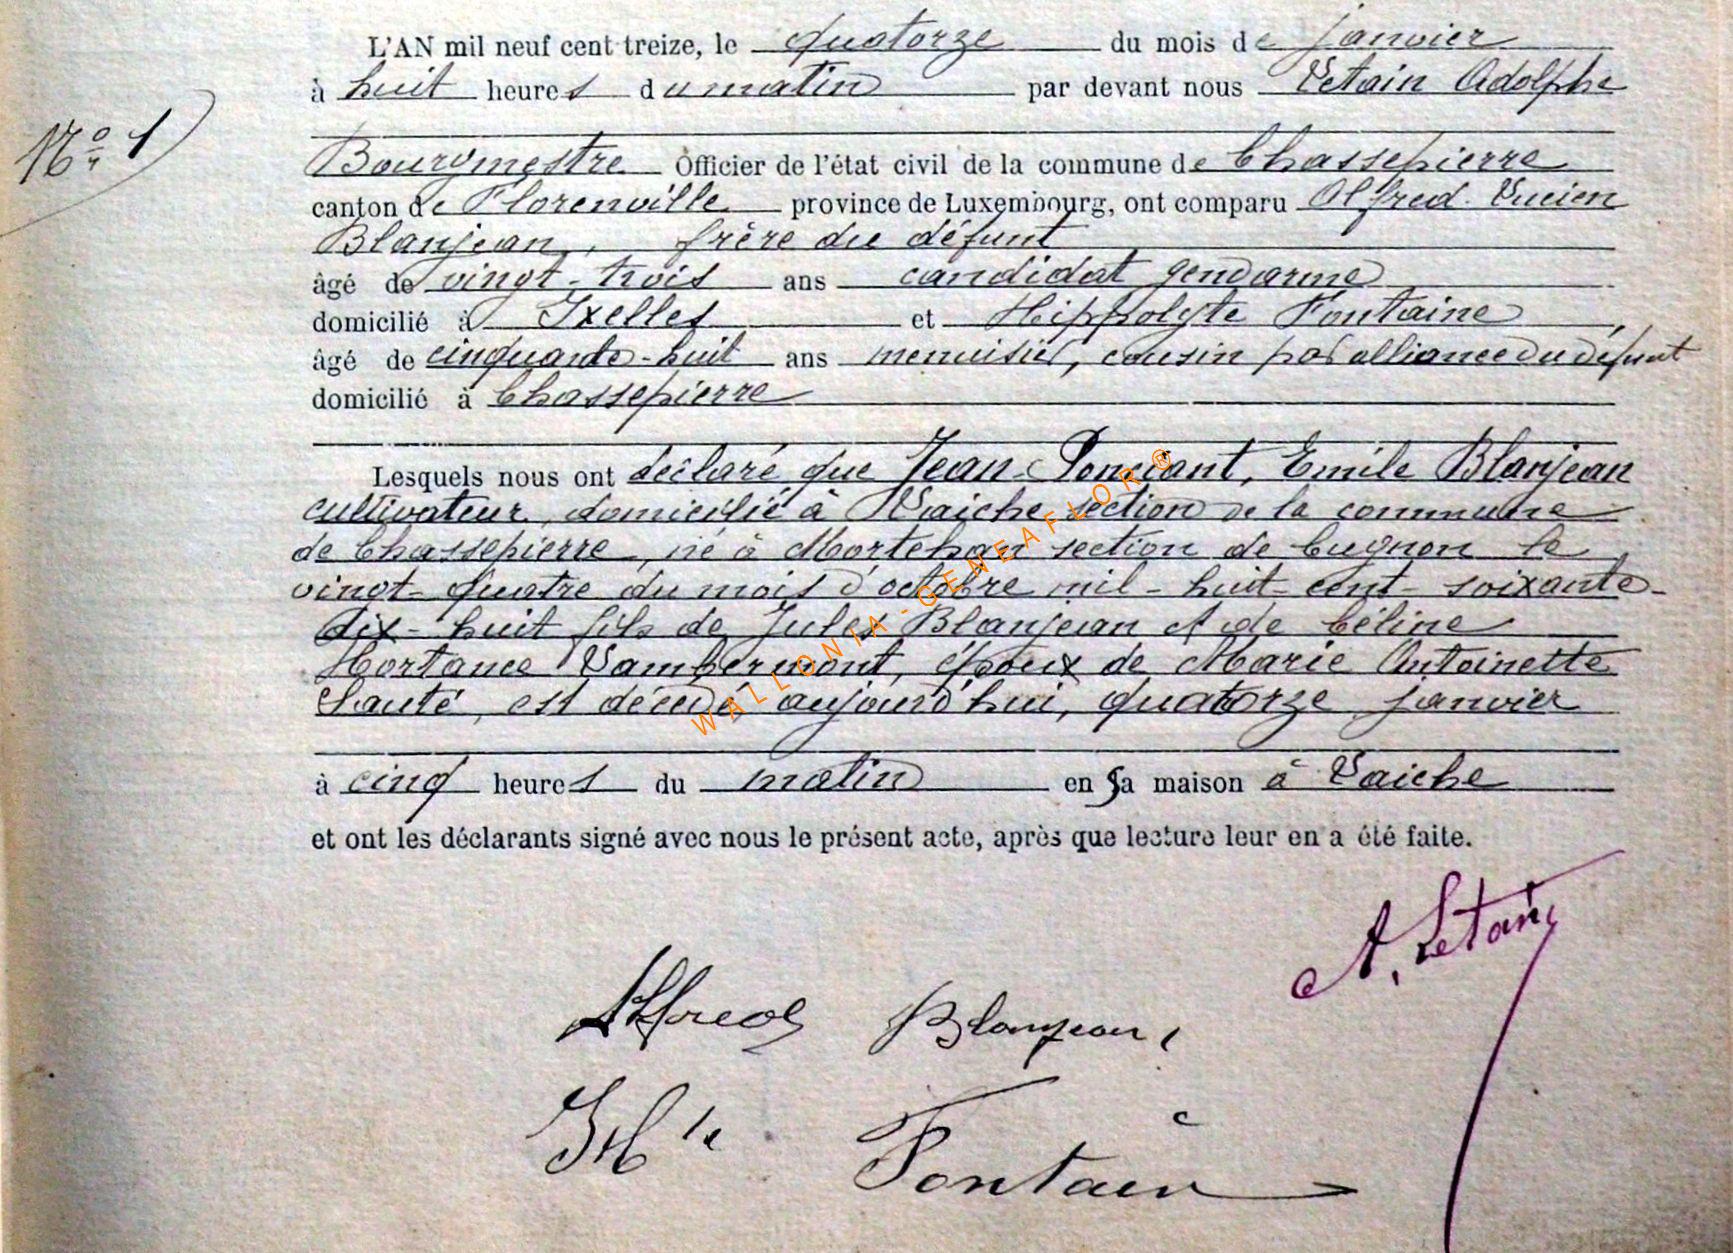 L'AN mil neuf cent treize, le quatorze du mois de janvier
à huit heures du matin par devant nous Letain Adolphe
No 1
Bourgmestre Officier de l'état civil de la commune de Chassepierre
canton de Florenville province de Luxembourg, ont comparu Alfred Lucien
Blanjean, frère du défunt
âgé de vingt-trois ans candidat gendarme
domicilié à Ixelles et Hippolyte Fontaine,
âgé de cinquante-huit ans menuisier, cousin par alliance du défunt
domicilié à Chassepierre
Lesquels nous ont déclaré que Jean-Ponciant, Emile Blanjean
cultivateur, domicilié à Laiche section de la commune
de Chassepierre, né à Mortehan section de Cugnon le
vingt-quatre du mois d'octobre mil-huit-cent-soixante-
dix-huit fils de Jules Blanjean et de Céline
Hortance Lambermont, époux de Marie Antoinette
Santé, est décédé aujourd'hui, quatorze janvier
à cinq heures du matin en Sa maison à Laiche
et ont les déclarants signé avec nous le présent acte, après que lecture leur en a été faite.
A. Letain
Alfred Blanjean
Hte Fontain
WALLONIA - GENEAFLOR ®